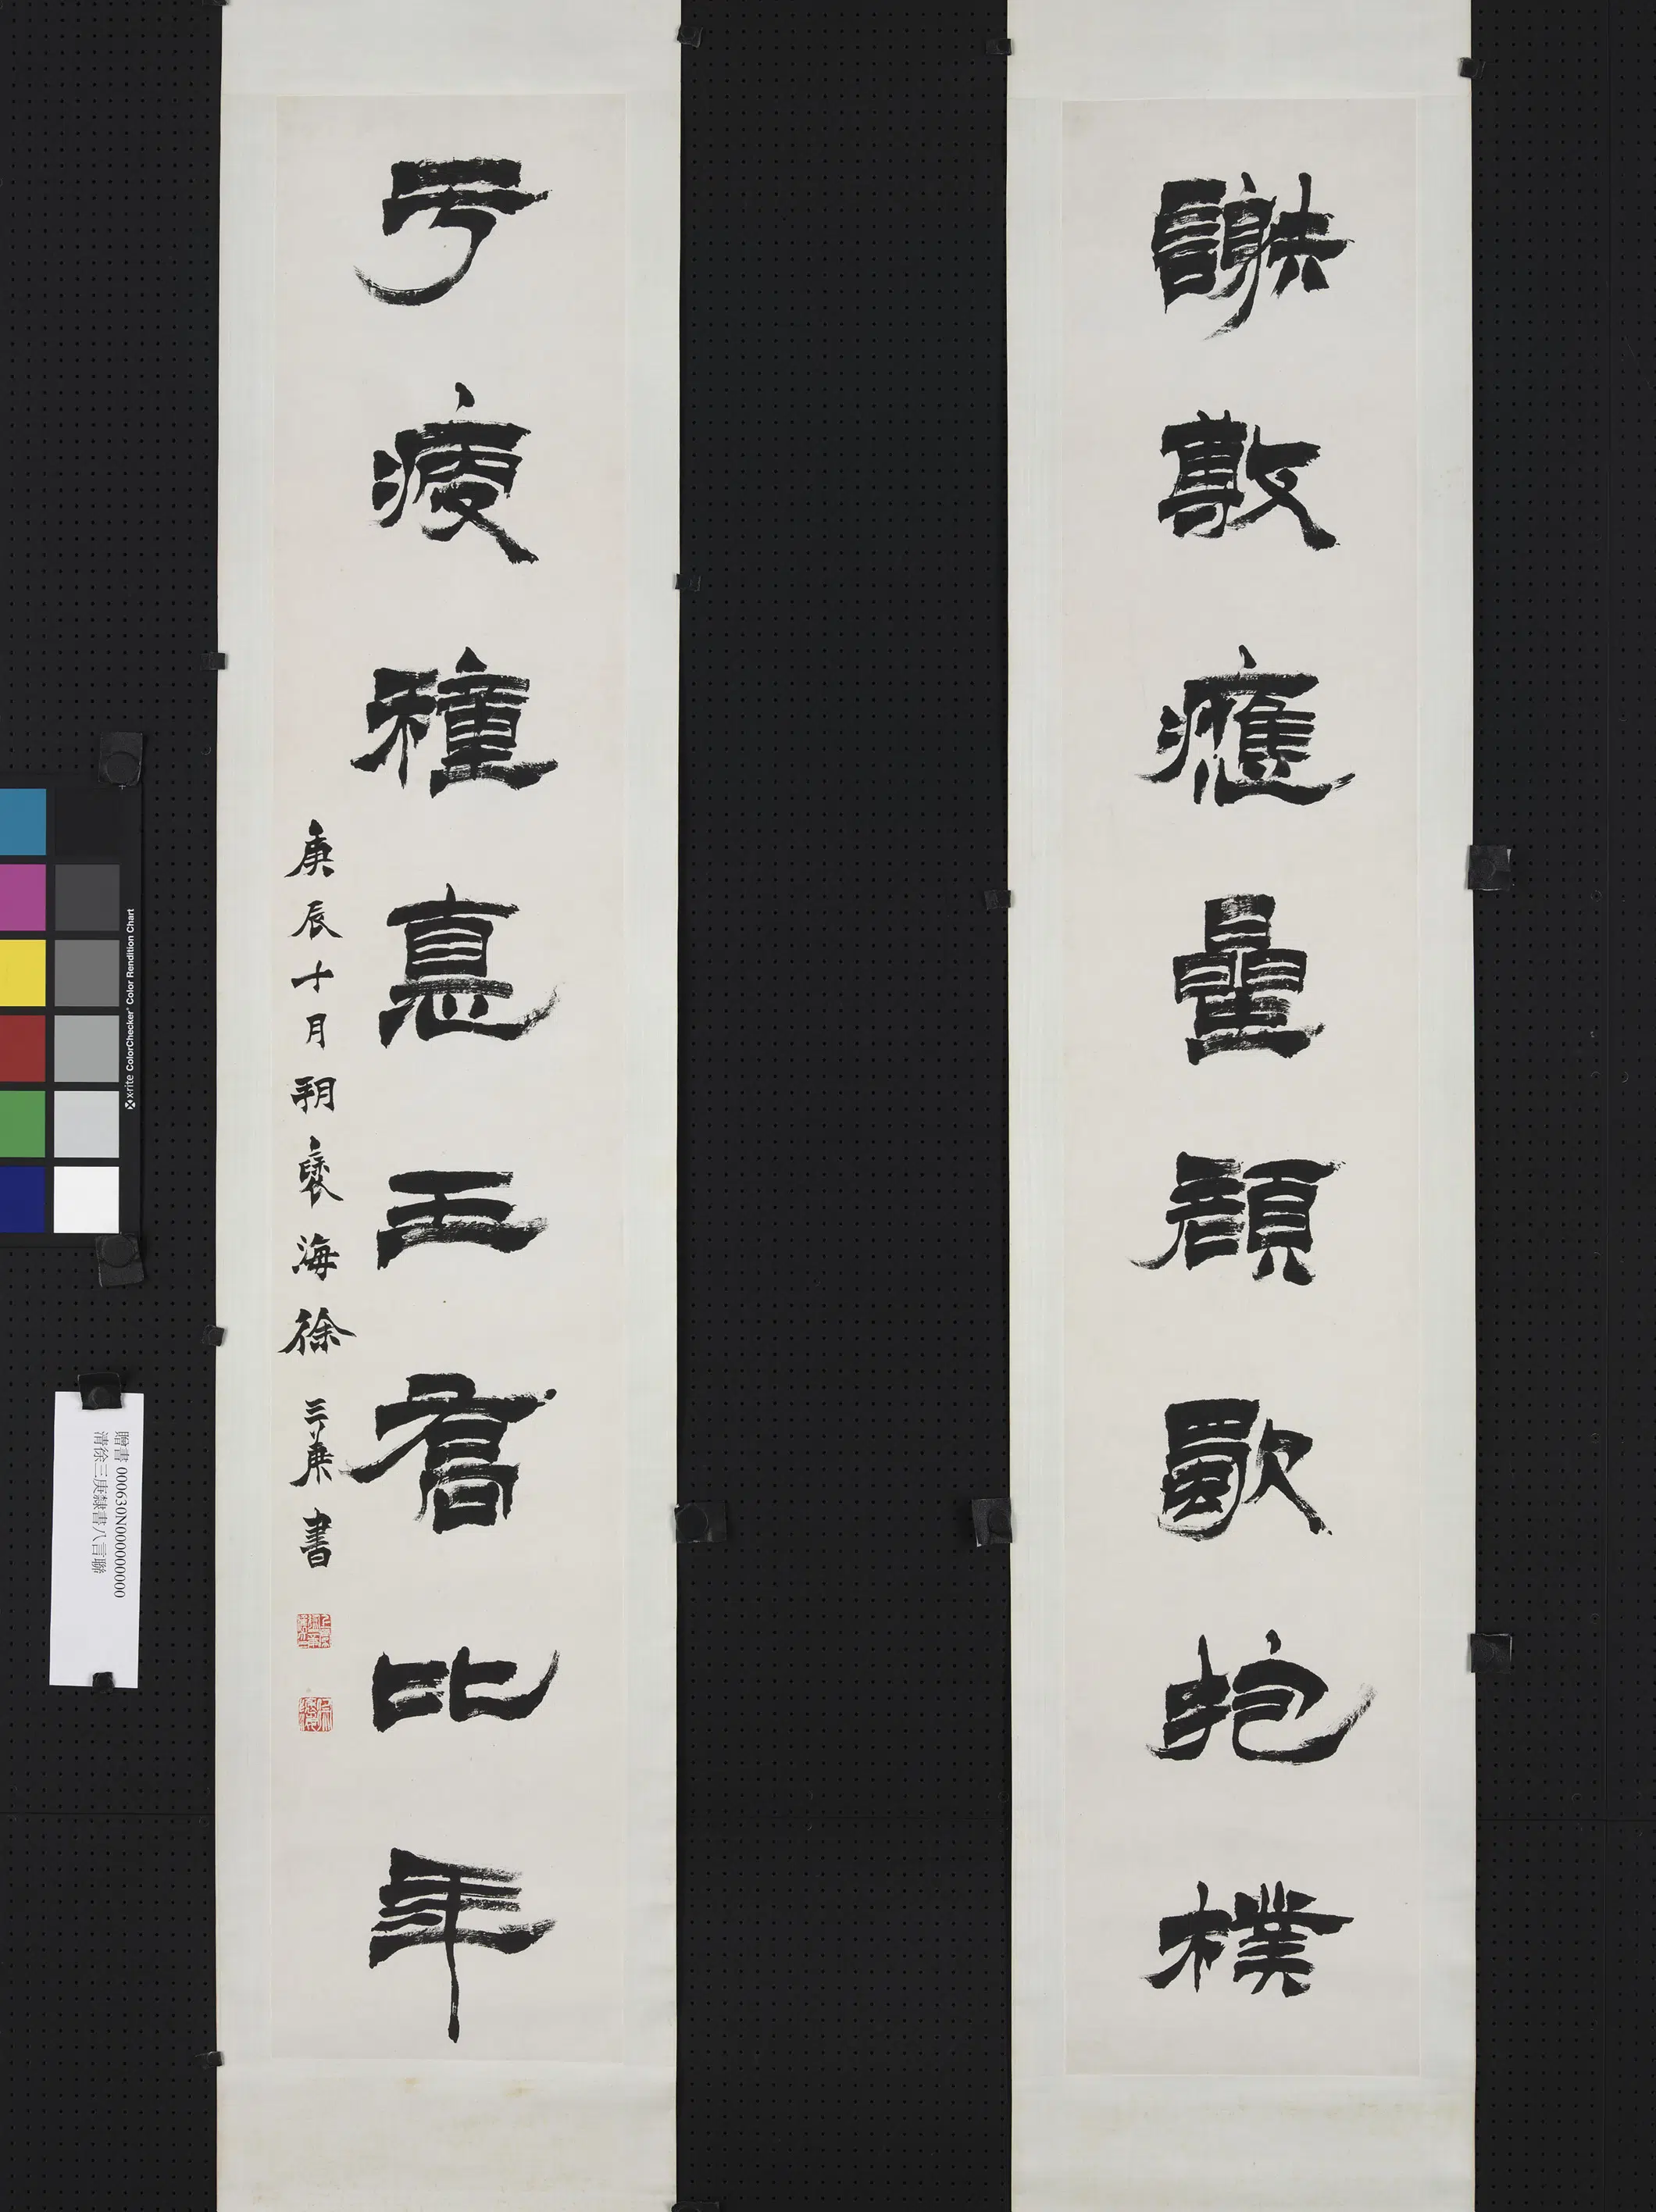 謝敷應曐顏歜抱樸
亏種悳王喬比年
庚辰十月朔褎海徐三庚書
贈書 000630N000000000
清徐三庚隸書八言聯
x-rite ColorChecker Color Rendition Chart